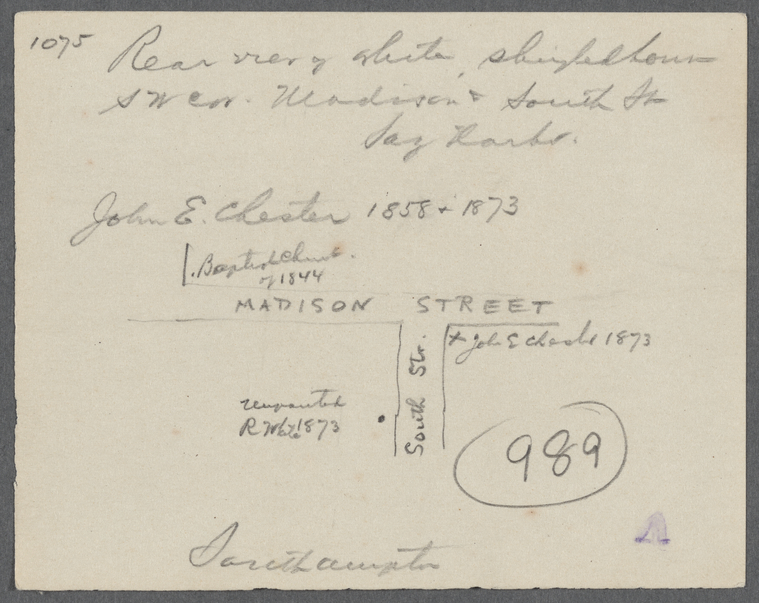 1075
Rear view of white, shingled house
SW cor. Madison & South St
Sag Harbor.
John E. Chester 1858 + 1873
Baptist Church
of 1844
MADISON STREET
South Str.
x John E Cheste 1873
unpainted
R 1873
989
Southampton